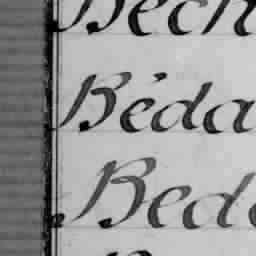 Bech
Béda
Bedo